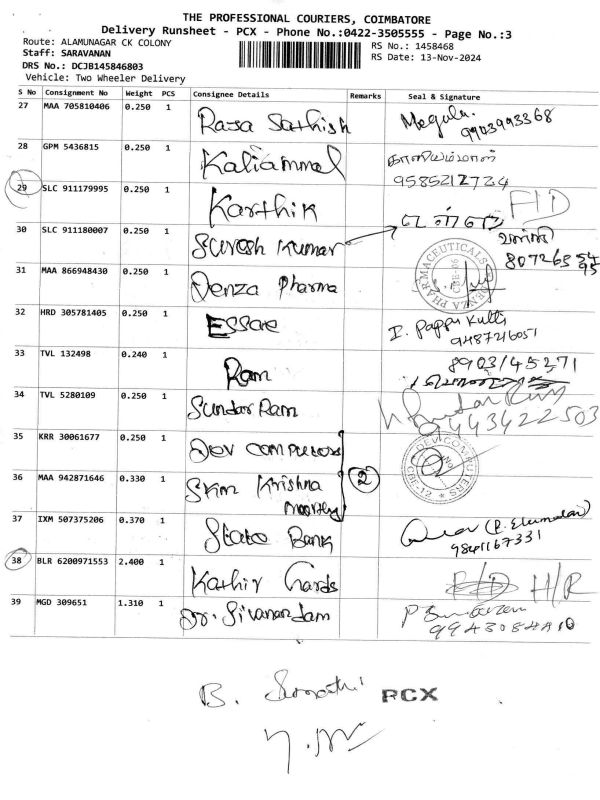 THE PROFESSIONAL COURIERS, COIMBATORE
Delivery Runsheet - PCX - Phone No.:0422-3505555 - Page No.:3
Route: ALAMUNAGAR CK COLONY
RS No.: 1458468
Staff: SARAVANAN
RS Date: 13-Nov-2024
DRS No.: DCJB145846803
Vehicle: Two Wheeler Delivery
S No Consignment No Weight PCS Consignee Details Remarks Seal & Signature
27 MAA 705810406 0.250 1 Raja Sathish Megala.
9903993368
28 GPM 5436815 0.250 1 Kaliammal காளியம்மாள்
9585212724
29 SLC 911179995 0.250 1 Karthik
30 SLC 911180007 0.250 1 Suresh Kumar
31 MAA 866948430 0.250 1 Denza Pharma DENZA PHARMACEUTICALS CBE-06
32 HRD 305781405 0.250 1 ESSae I. Pappu Kutti
9487216051
33 TVL 132498 0.240 1 Ram 8903145271
34 TVL 5280109 0.250 1 Sundar Ram
9443422503
35 KRR 30061677 0.250 1 Dev computers DEV COMPUTERS
36 MAA 942871646 0.330 1 SKM Krishna
moorthy 2
37 IXM 507375206 0.370 1 State Bank
9841167331
38 BLR 6200971553 2.400 1 Kathir Cards H/R
39 MGD 309651 1.310 1 Dr. Sivanandam
PCX